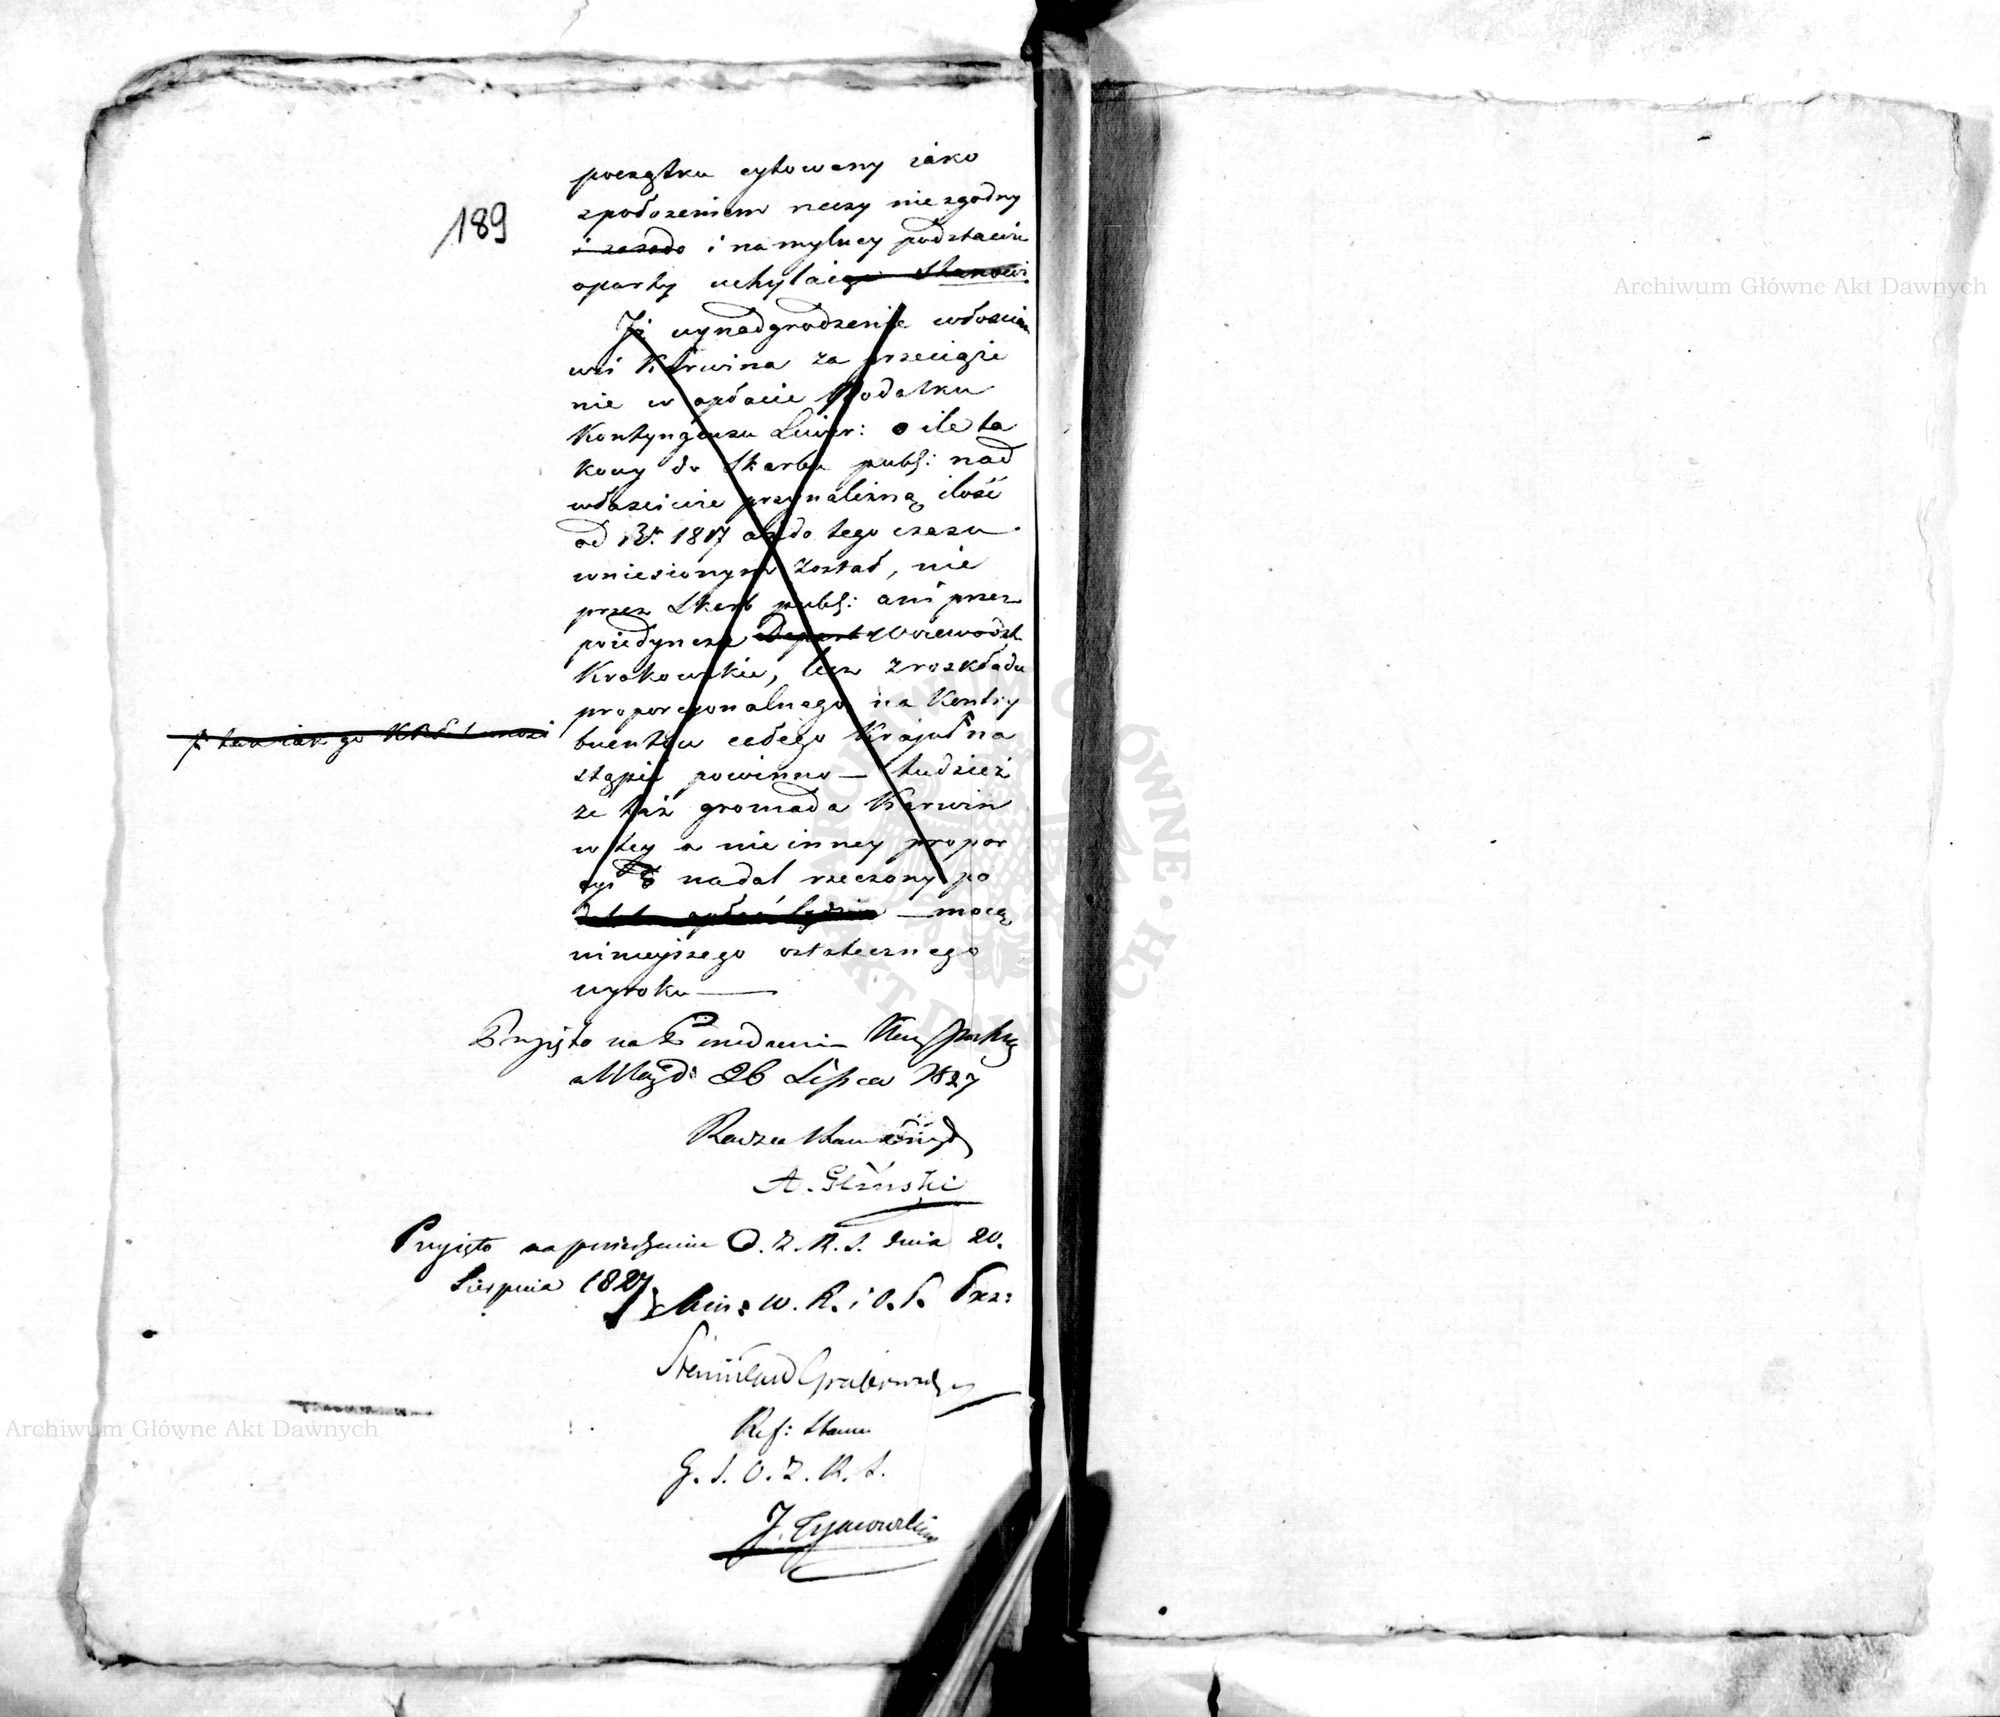 189
początku cytowany iako
z położeniem rzeczy niezgodny
i zasado i na mylney podstawie
oparty uchylaiąc Stanowi
Iż wynadgrodzenie włościan
wsi Karwina za przeciąże
nie w opłacie Podatku
Kontyngensu Liwer: o ile ta
kowy do Skarbu publ: nad
właściwie przynależną ilość
od r. 1817 aż do tego czasu
wniesionym został, nie
przez Skarb publ: ani przez
poiedyncze Depart Wojewodzt
Krakowskie, lecz z rozkładu
proporcyonalnego na Kontry
buentów całego Kraju na
stąpić powinno — tudzież
że taż gromada Karwin
w tey a nie inney propor
cyi nadal rzeczony po
datek opłacać będzie — mocą
ninieyszego ostatecznego
wyroku —
Przyięto na Posiedzeniu
26 Lipca 1827
Radzca Stanu
A. Gliński
Przyięto na posiedzeniu O. Z. R. S. dnia 20.
Sierpnia 1827
Min: W. R. i O. P. Prez:
Stanisław Grabowski
Ref: Stanu
G. S. O. Z. R. S.
J. Tymowski
Archiwum Główne Akt Dawnych
Archiwum Główne Akt Dawnych